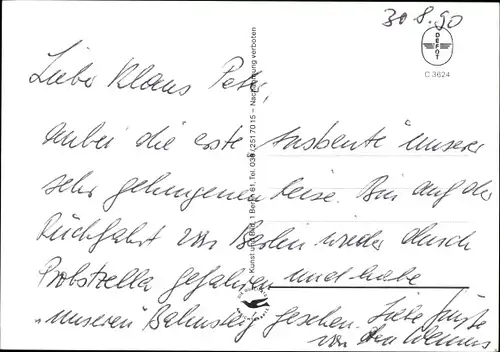 30.8.90
DEFOT
C 3624
Lieber Klaus Peter,
anbei die erste Ausbeute unserer
sehr gelungenen Reise. Bin auf der
Rückfahrt von Berlin wieder durch
Probstzella gefahren und habe
"unseren" Bahnsteig gesehen. Liebe Grüße
von
Kunst und Bild, 1 Berlin 61, Tel. 030/2517015 – Nachahmung verboten